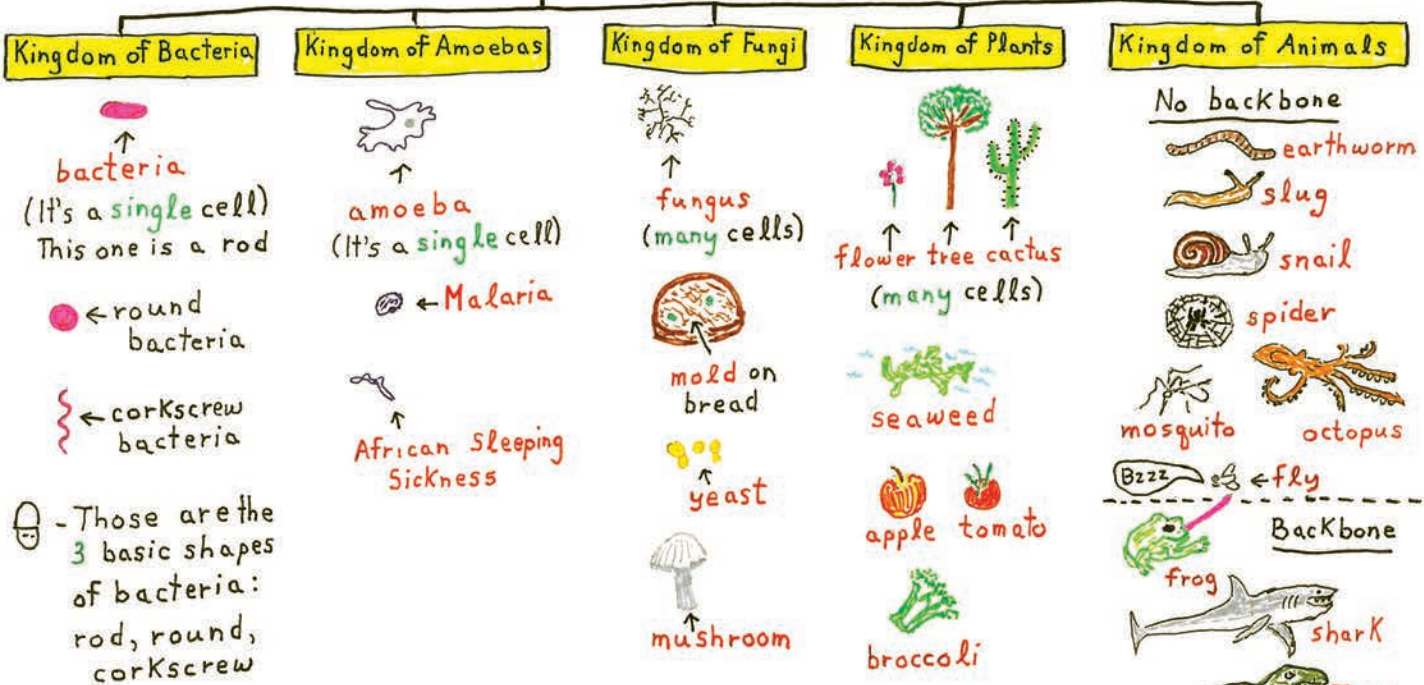 Kingdom of Bacteria
bacteria
(It's a single cell)
This one is a rod
←round
bacteria
←corkscrew
bacteria
- Those are the
3 basic shapes
of bacteria:
rod, round,
corkscrew
Kingdom of Amoebas
amoeba
(It's a single cell)
←Malaria
African Sleeping
Sickness
Kingdom of Fungi
fungus
(many cells)
mold on
bread
yeast
mushroom
Kingdom of Plants
flower tree cactus
(many cells)
seaweed
apple tomato
broccoli
Kingdom of Animals
No backbone
earthworm
slug
snail
spider
mosquito octopus
Bzzz ←fly
Backbone
frog
shark